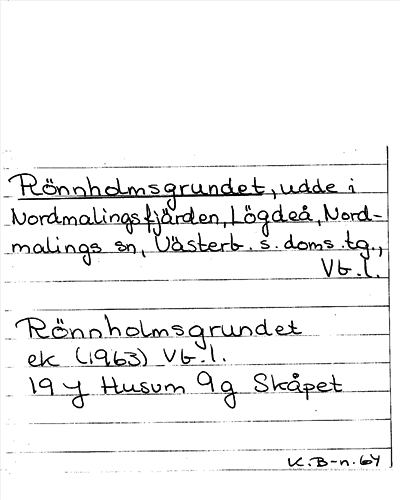 Rönnholmsgrundet, udde i
Nordmalingsfjärden, Lögdeå, Nord-
malings sn, Västerb. s. doms. tg.,
Vb. l.
Rönnholmsgrundet
ek (1963) Vb. l.
19 J Husum 9g Skåpet
K. B-n. 64